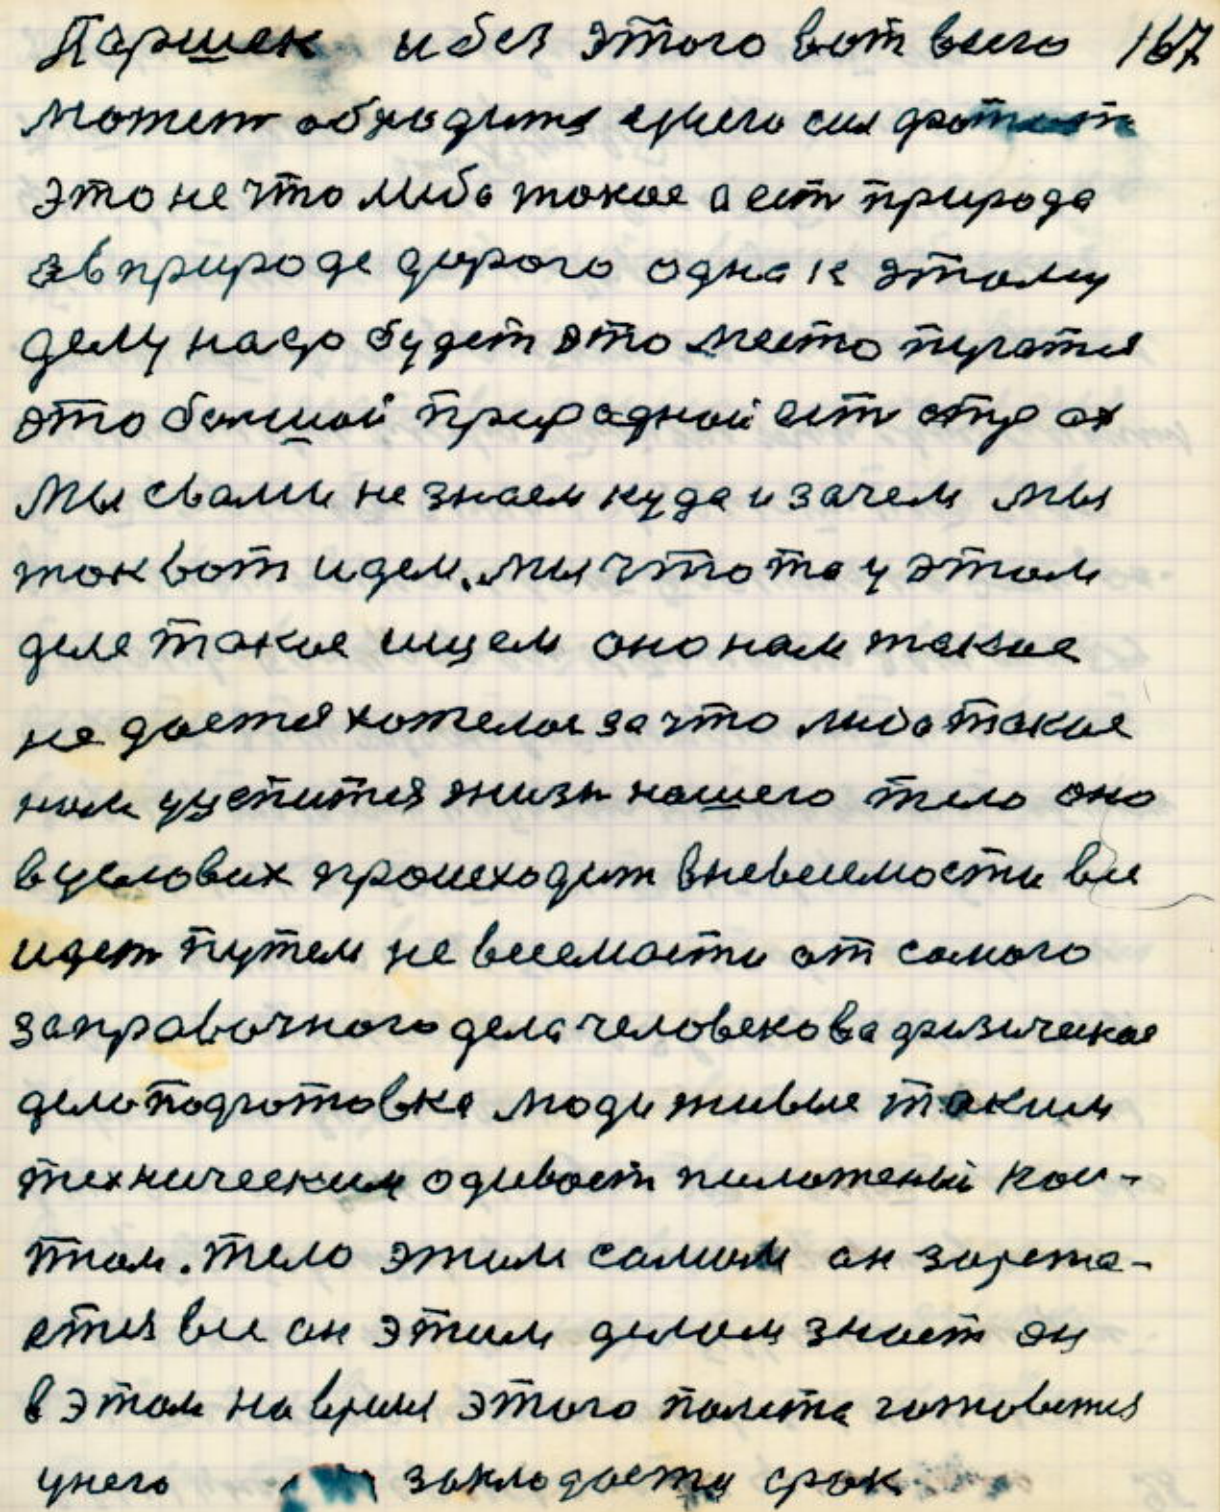 Паршек и без этого вот всего 167
может обходится у него сил
это не что либо такое а ест природа
а в природе дорога одна к этому
делу надо будет это место пугатся
это большой природной ест страх
Мы свами не знаем куда и зачем мы
так вот идем. мы что то у этом
деле такие ищем оно нам такое
не дается хотелос за что либо такое
нам уцепится жизн нашего тело оно
в условиях происходит вневесемости все
идет путем не весемости от самого
заправочного дела человекова физическое
дело подготовка люди живые таким
техническим одивает пиложеный кос-
том. тело этим самым он зорежа-
ется все он этим делом знает он
в этом на время этого полета готовится
унего закладается срок